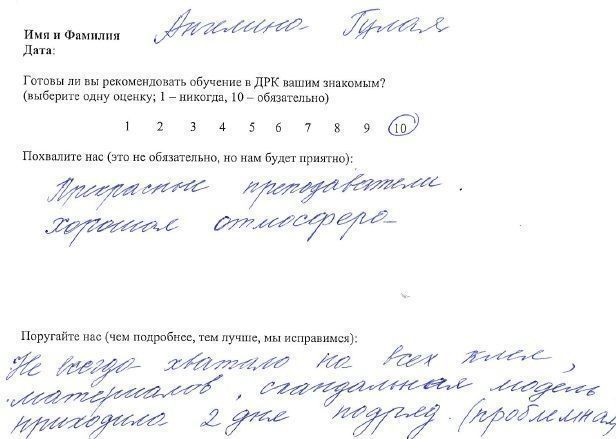 Имя и Фамилия Ангелина Гулая
Дата:
Готовы ли вы рекомендовать обучение в ДРК вашим знакомым?
(выберите одну оценку; 1 – никогда, 10 – обязательно)
1 2 3 4 5 6 7 8 9 10
Похвалите нас (это не обязательно, но нам будет приятно):
Прекрасные преподаватели.
Хорошая атмосфера
Поругайте нас (чем подробнее, тем лучше, мы исправимся):
Не всегда хватало на всех клея,
материалов, скандальная модель
приходила 2 дня подряд. (проблемная)